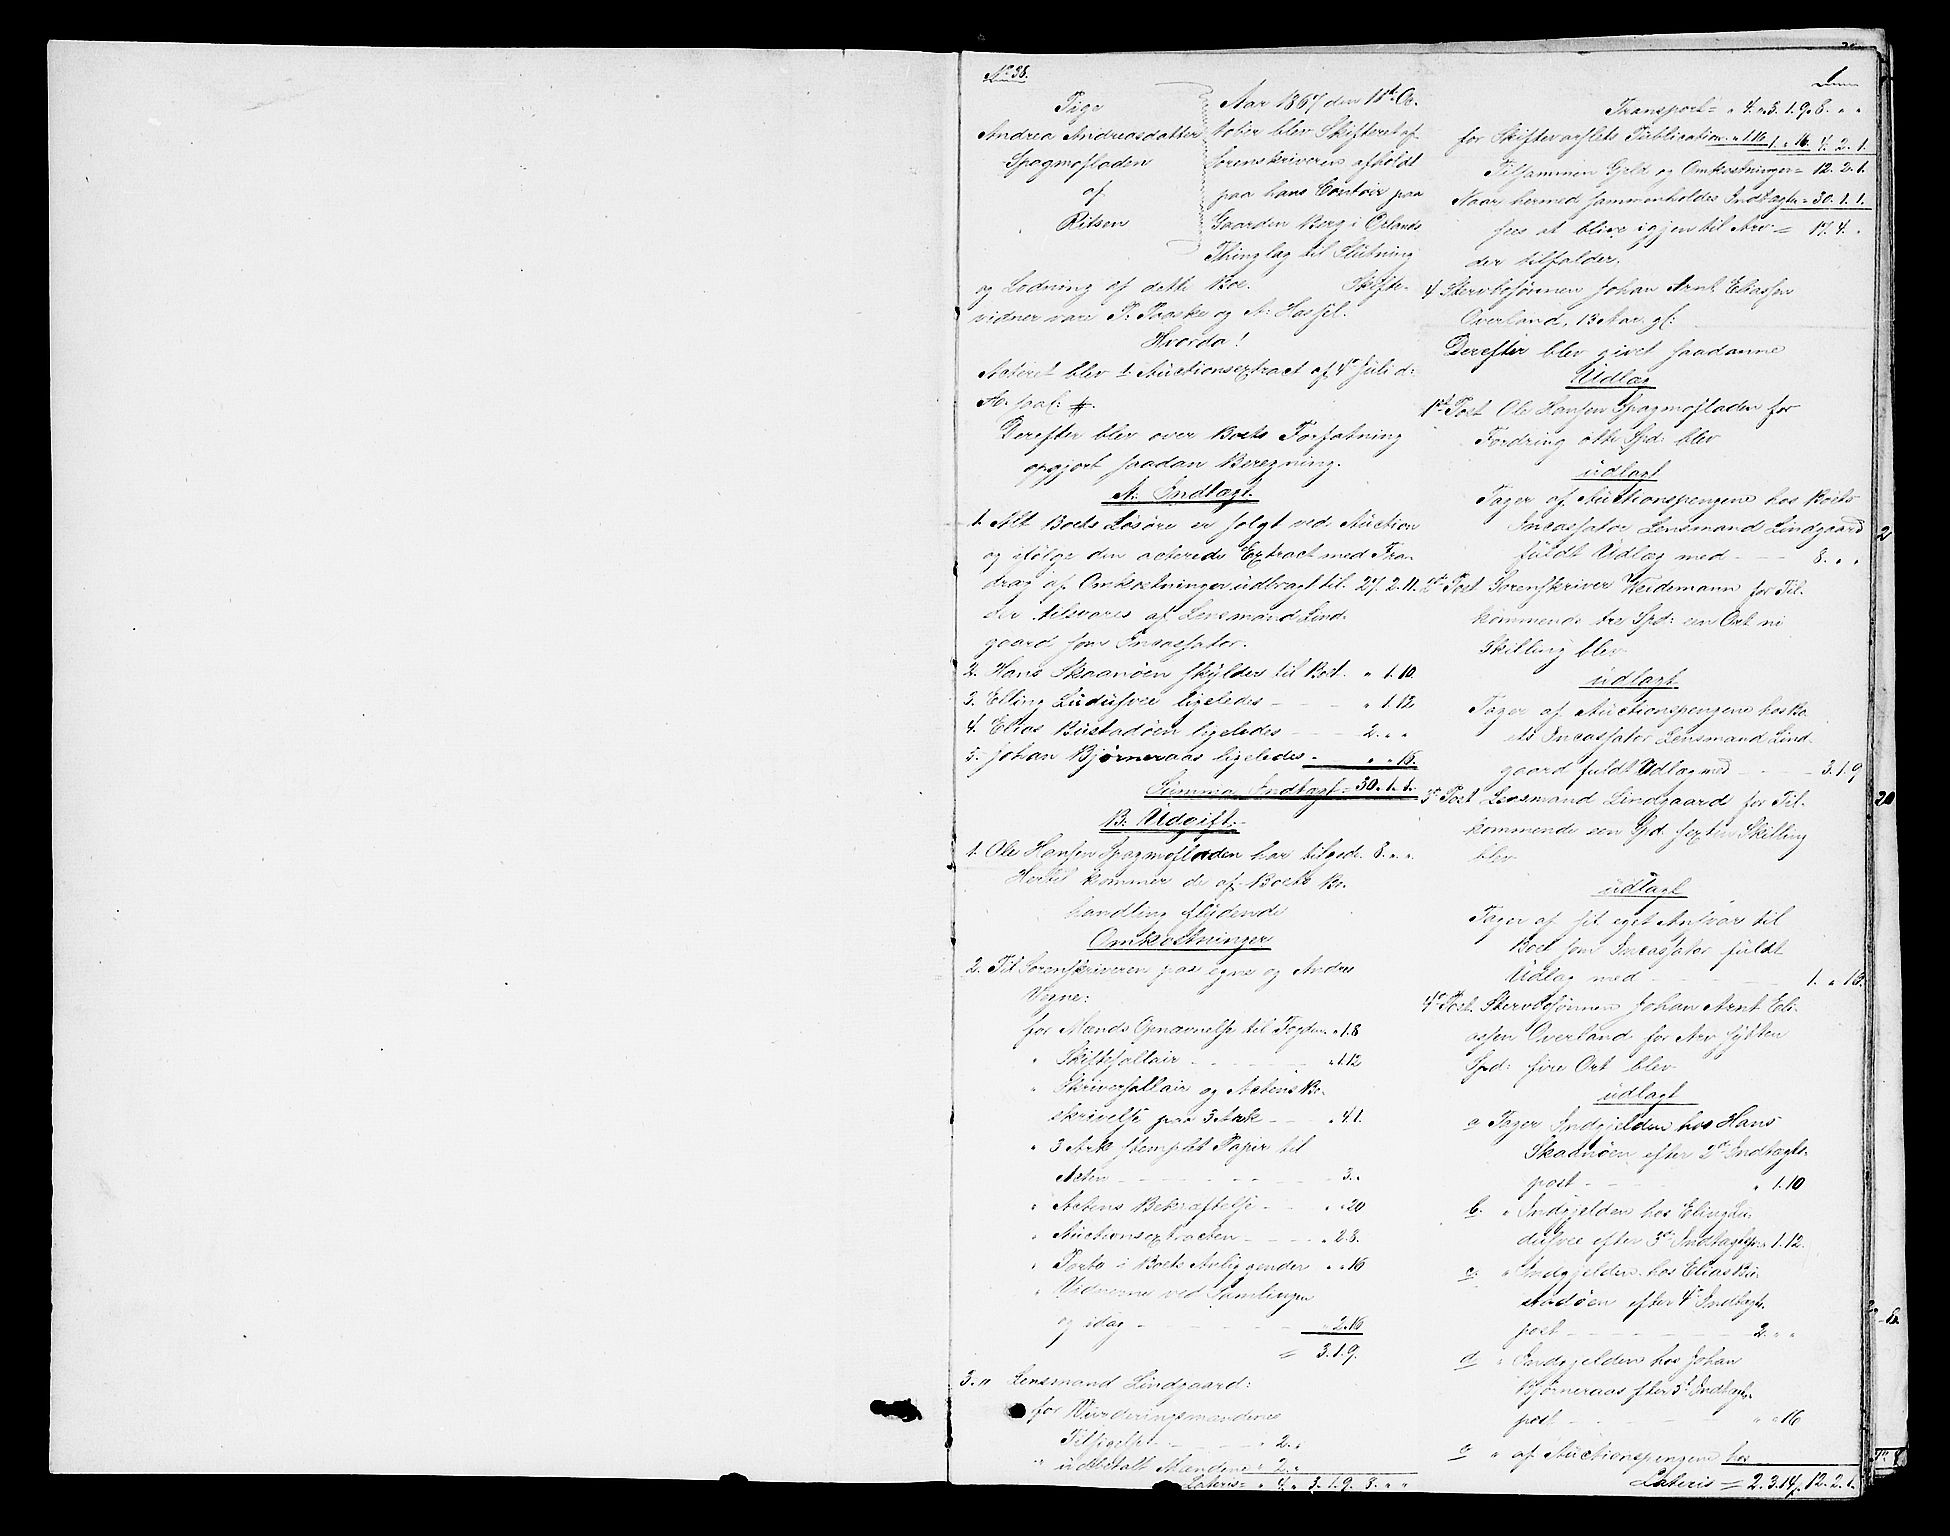 No 38.
Pige
Andrea Andreasdatter
Spagmofladen
af
Ritsen
Aar 1867 den 11te Oc-
tober blev Skifteret af
Sorenskriveren afholdt
paa hans Contoir paa
Gaarden Borg i Ørlands
Thinglag til Slutning
og Lodning af dette Boe. Skifte-
vidner vare P. Paaske og A. Hassel.
Hvorda!
Acteret blev 1. Auctionsextract af 4de Juli d:
A: saal:
Derefter blev over Boets Forfatning
opgjort saadan Beregning.
A: Indtægt.
1. Alt Boets Løsøre er solgt ved Auction
og ifølge den acterede Extract med Fra-
drag af Omkostninger udbragt til 27. 2. 11.
der tilsvares af Lensmand Lind-
gaard som Incassator.
2. Hans Skaanøen skylder til Boet. " 1. 10.
3. Elling Ludusvee ligeledes - " 1. 12
4. Elias Bustadøen ligeledes - 2. " "
5. Johan Bjørneraas ligeledes - " " 16.
Summa Indtægt = 30. 1. 1.
B. Udgift.
1. Ole Hansen Spagmofladen har tilgode 8. " ".
Hertil kommer de af Boets Be-
handling flydende
Omkostninger
2. Til Sorenskriveren paa egne og Andres
Vegne:
for Mænds Opnævnelse til Taxten " 1. 8
" Skiftesallair - " 1. 12
" Skriversallair og Actens Be-
skrivelse paa 3 Ark - " 4. 1.
" 3 Ark stemplet Papir til
Acten - 3. "
" Actens Bekræftelse - " " 20
" Auctionsextracten - " 2. 3.
" Porto i Boets Anliggender " " 16
" Vidnerne ved Samlingen
og idag - " 2. 16
= 3. 1. 9.
3. " Lensmand Lindgaard:
for Vurderingsmændenes
Tilsigelse - " 2. "
" udbetalt Mændene " 2. "
Lateris = " 4. " 3. 1. 9. 8. " "
1
Transport = " 4. " 3. 1. 9. 8. " "
for Skiftevarslets Publication " 1 16. 1. " 16. 4. 2. 1.
Tilsammen Gjeld og Omkostninger = 12. 2. 1.
Naar hermed sammenholdes Indtægten = 30. 1. 1.
sees at blive igjen til Arv = 17. 4. "
der tilfalder.
4 Stervbosønnen Johan Arnt Eliassen
Overland, 13 Aar gl:
Derefter blev givet saadanne
Udlæg
1ste Post Ole Hansen Spagmofladen for
Fordring otte Spd: blev
udlagt
Tager af Auctionspengene hos Boets
Incassator Lensmand Lindgaard
fuldt Udlæg med - 8. " "
2den Post Sorenskriver Weidemann for Til-
kommende tre Spd: een Ort ni
Skilling blev
udlagt
Tager af Auctionspengene hos Bo-
ets Incassator Lensmand Lind-
gaard fuldt Udlæg med - 3. 1. 9
3de Post Lensmand Lindgaard for Til-
kommende een Spd. sexten Skilling
blev
udlagt
Tager af sit eget Ansvar til
Boet som Incassator fuldt
Udlæg med - 1. " 16.
4de Post. Stervbosønnen Johan Arnt Eli-
assen Overland for Arv sytten
Spd: fire Ort blev
udlagt
a Tager Indgjelden hos Hans
Skaanøen efter 2den Indtægts-
post - " 1. 10
b. " Indgjelden hos Elling Lu-
dusvee efter 3de Indtægtspost " 1. 12.
c. " Indgjelden hos Elias Bu-
stadøen efter 4de Indtægts-
post - 2. " "
d " Indgjelden hos Johan
Bjørneraas efter 5te Indtægts-
post - " " 16
e " af Auctionspengene hos
Lateris = 2. 3. 14. 12. 2. 1.